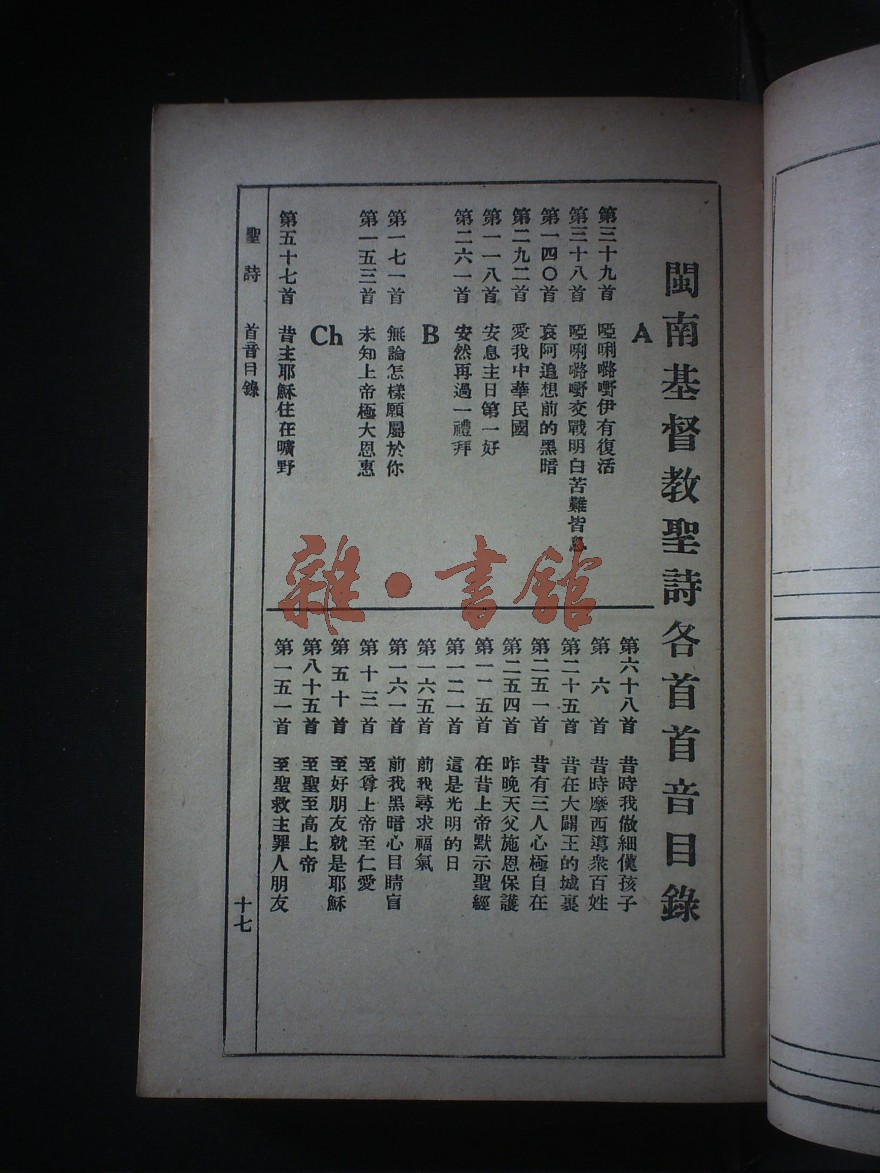 閩南基督教聖詩各首首音目錄
A
第三十九首 啞唎嚕嘢伊有復活
第三十八首 啞唎嚕嘢交戰明白苦難皆息
第一四〇首 哀阿追想前的黑暗
第二九二首 愛我中華民國
第一一八首 安息主日第一好
第二六一首 安然再過一禮拜
B
第一七一首 無論怎樣願屬於你
第一五三首 未知上帝極大恩惠
Ch
第五十七首 昔主耶穌住在曠野
第六十八首 昔時我做細漢孩子
第六首 昔時摩西導衆百姓
第二十五首 昔在大闢王的城裏
第二五一首 昔有三人心極自在
第二五四首 昨晚天父施恩保護
第一二五首 在昔上帝默示聖經
第一二一首 這是光明的日
第一六五首 前我尋求福氣
第一六一首 前我黑暗心目睛盲
第十三首 至尊上帝至仁愛
第五十首 至好朋友就是耶穌
第八十五首 至聖至高上帝
第一五一首 至聖救主罪人朋友
聖詩 首音目錄
十七
雜·書館